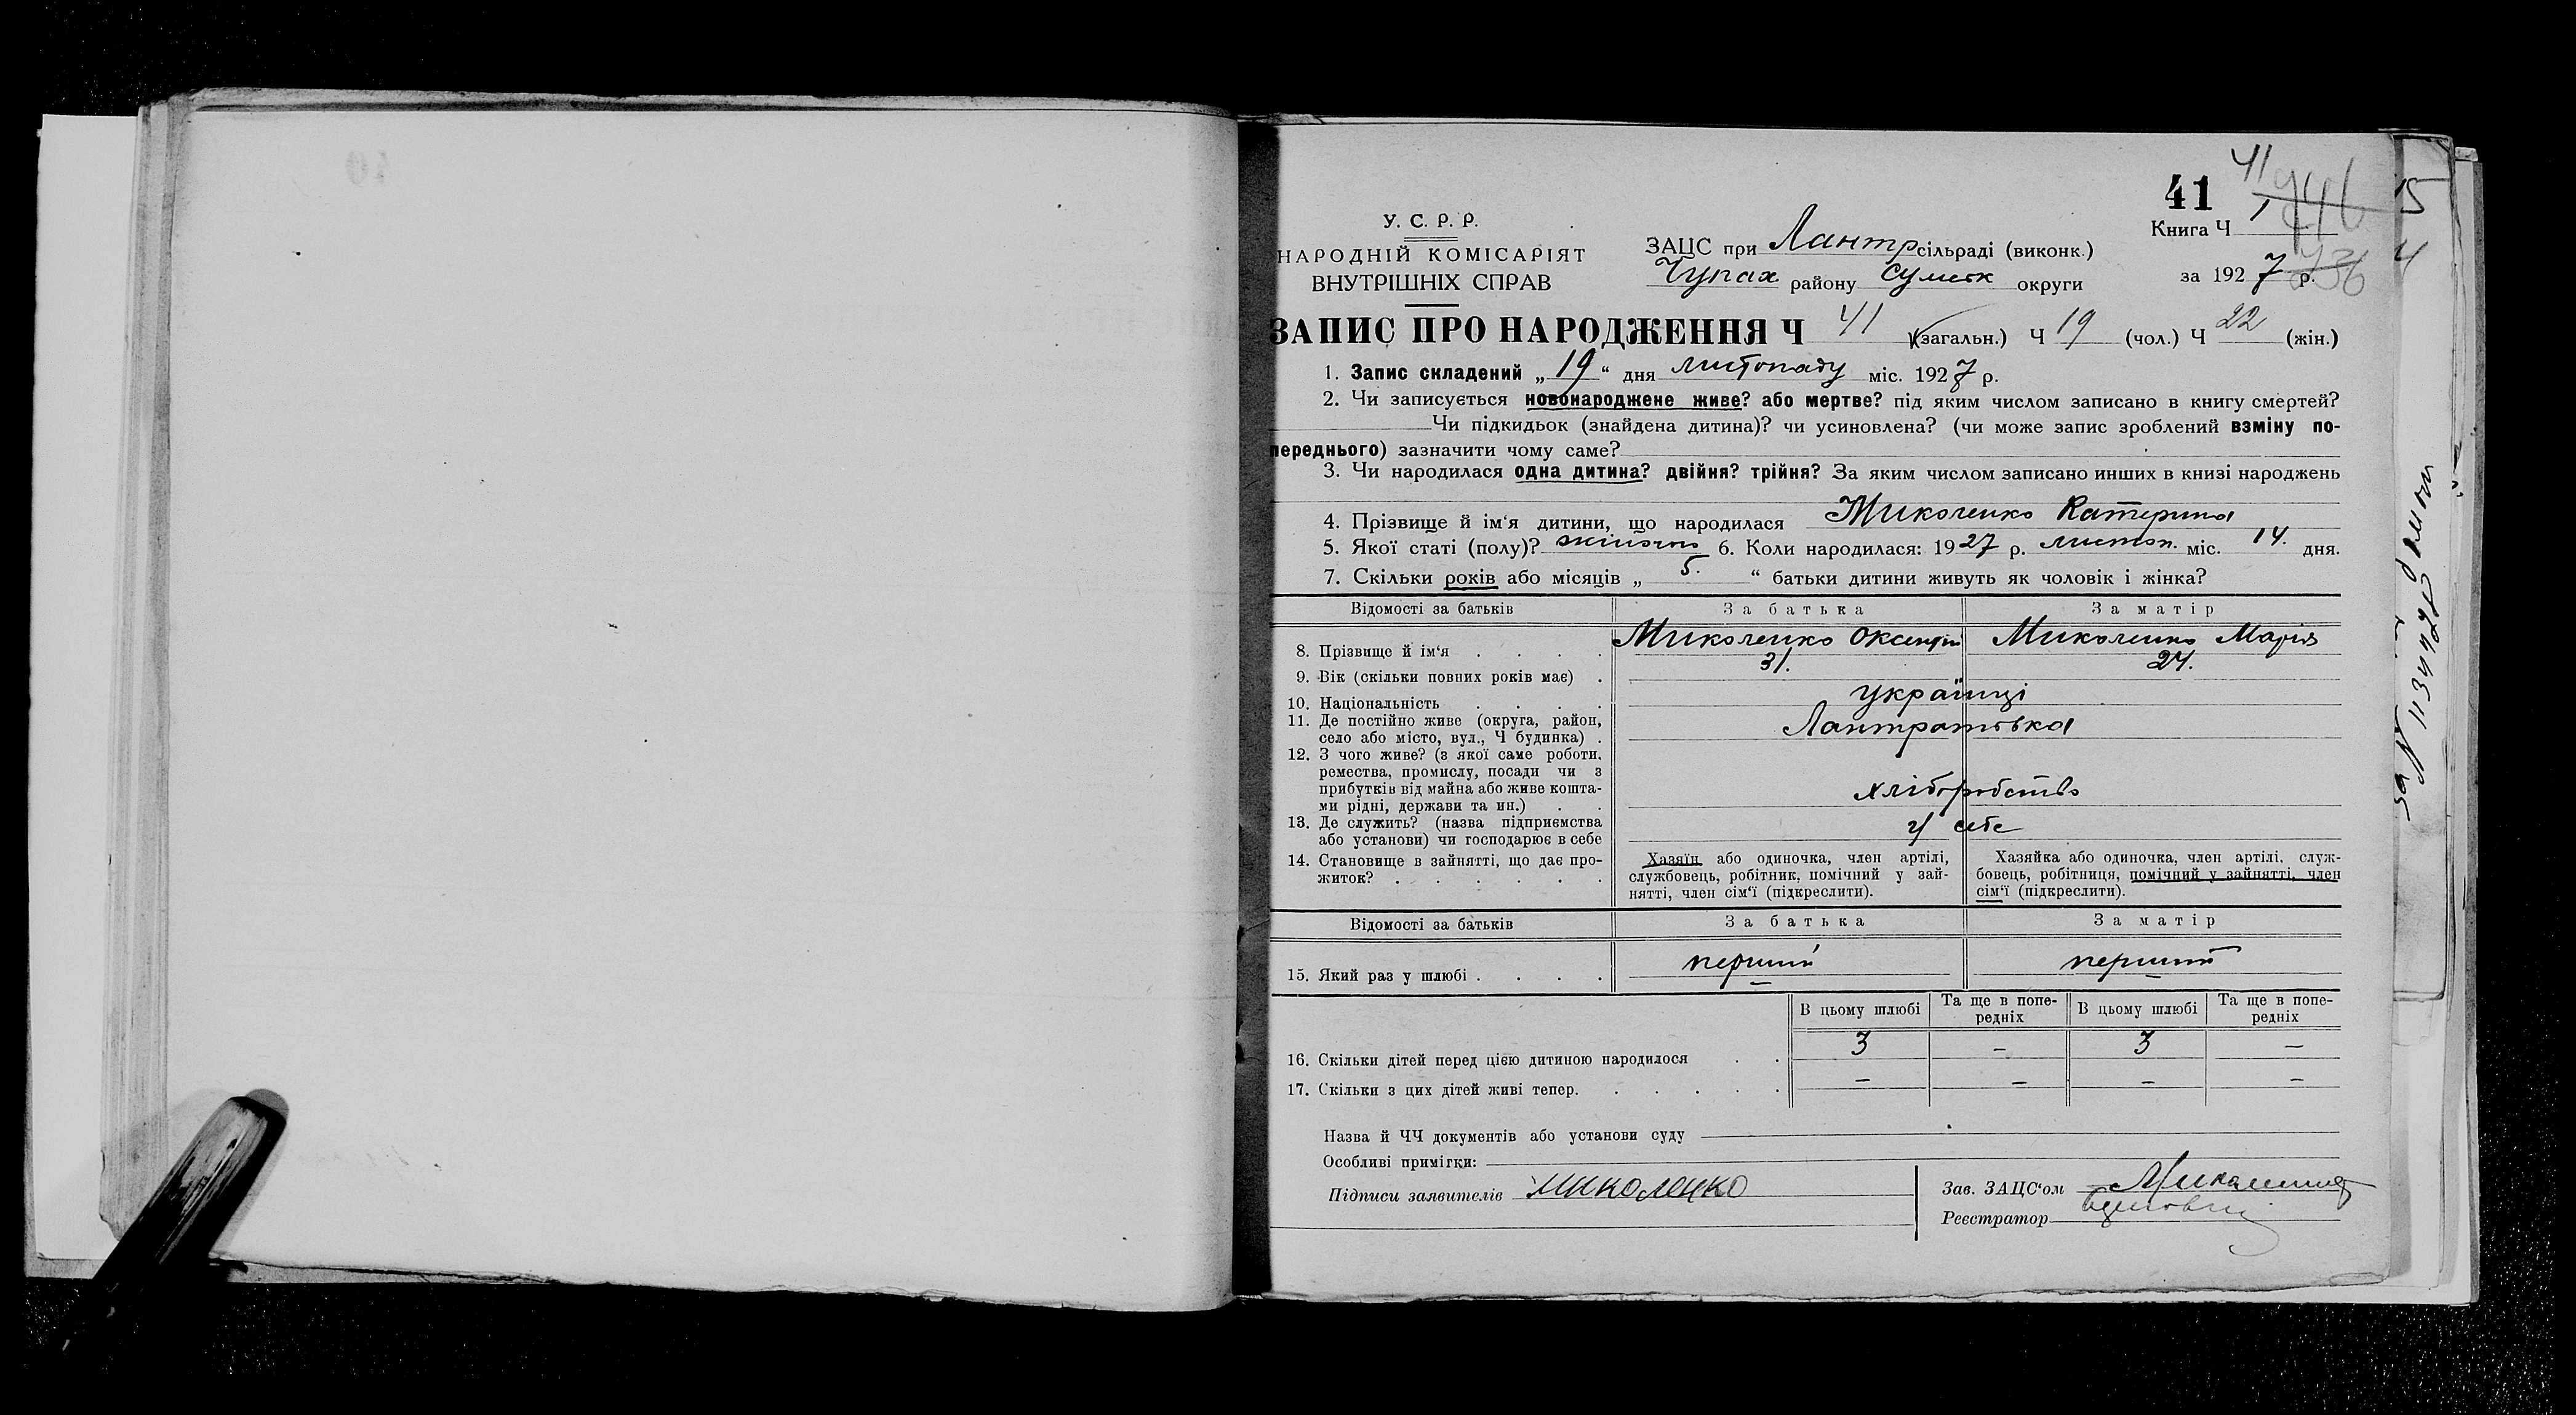 41
41
У. С. Р. Р.
НАРОДНІЙ КОМІСАРІЯТ
ВНУТРІШНІХ СПРАВ
ЗАЦС при Лантр сільраді (виконк.)
Чупах району Сумськ округи
Книга Ч 1
за 1927 р.
ЗАПИС ПРО НАРОДЖЕННЯ Ч 41 (загальн.) Ч 19 (чол.) Ч 22 (жін.)
1. Запис складений „19“ дня листопаду міс. 1927 р.
2. Чи записується новонароджене живе? або мертве? під яким числом записано в книгу смертей?
Чи підкидьок (знайдена дитина)? чи усиновлена? (чи може запис зроблений взміну по-
переднього) зазначити чому саме?
3. Чи народилася одна дитина? двійня? трійня? За яким числом записано инших в книзі народжень
4. Прізвище й ім‘я дитини, що народилася Миколенко Катерина
5. Якої статі (полу)? жіночо 6. Коли народилася: 1927 р. листоп. міс. 14. дня.
7. Скільки років або місяців „ 5. “ батьки дитини живуть як чоловік і жінка?
Відомості за батьків За батька За матір
8. Прізвище й ім‘я . . . . Миколенко Оксентій Миколенко Марія
9. Вік (скільки повних років має) . 31. 24.
10. Національність . . . . українці
11. Де постійно живе (округа, район,
село або місто, вул., Ч будинка) . Лантратовка
12. З чого живе? (з якої саме роботи,
ремества, промислу, посади чи з
прибутків від майна або живе кошта-
ми рідні, держави та ин.) . . хліборобство
13. Де служить? (назва підприємства
або установи) чи господарює в себе у себе
14. Становище в зайнятті, що дає про-
житок? . . . . . .
Хазяїн або одиночка, член артілі,
службовець, робітник, помічний у зай-
нятті, член сім‘ї (підкреслити).
Хазяйка або одиночка, член артілі, служ-
бовець, робітниця, помічний у зайнятті, член
сім‘ї (підкреслити).
Відомості за батьків За батька За матір
15. Який раз у шлюбі . . . . перший перший
В цьому шлюбі Та ще в попе-
редніх В цьому шлюбі Та ще в попе-
редніх
16. Скільки дітей перед цією дитиною народилося . . 3 – 3 –
17. Скільки з цих дітей живі тепер. . . . . . – – – –
Назва й ЧЧ документів або установи суду
Особливі примітки:
Підписи заявителів Миколенко
Зав. ЗАЦС‘ом
Реєстратор